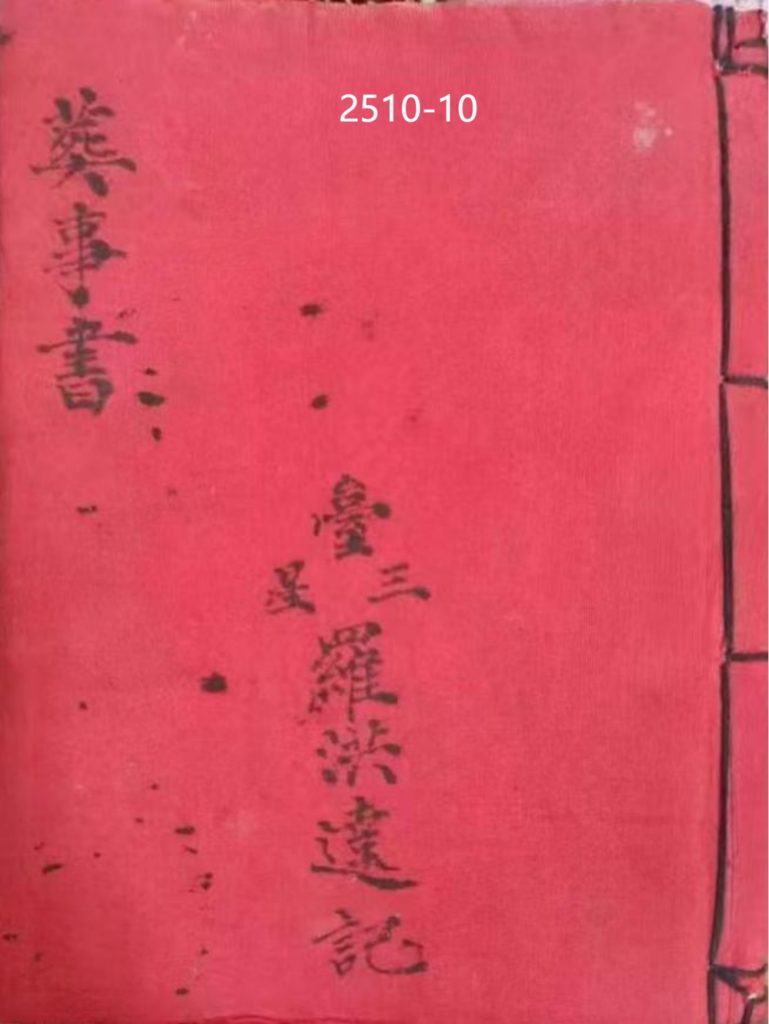 2510-10
臺
三星
羅洪遠記
葬事書